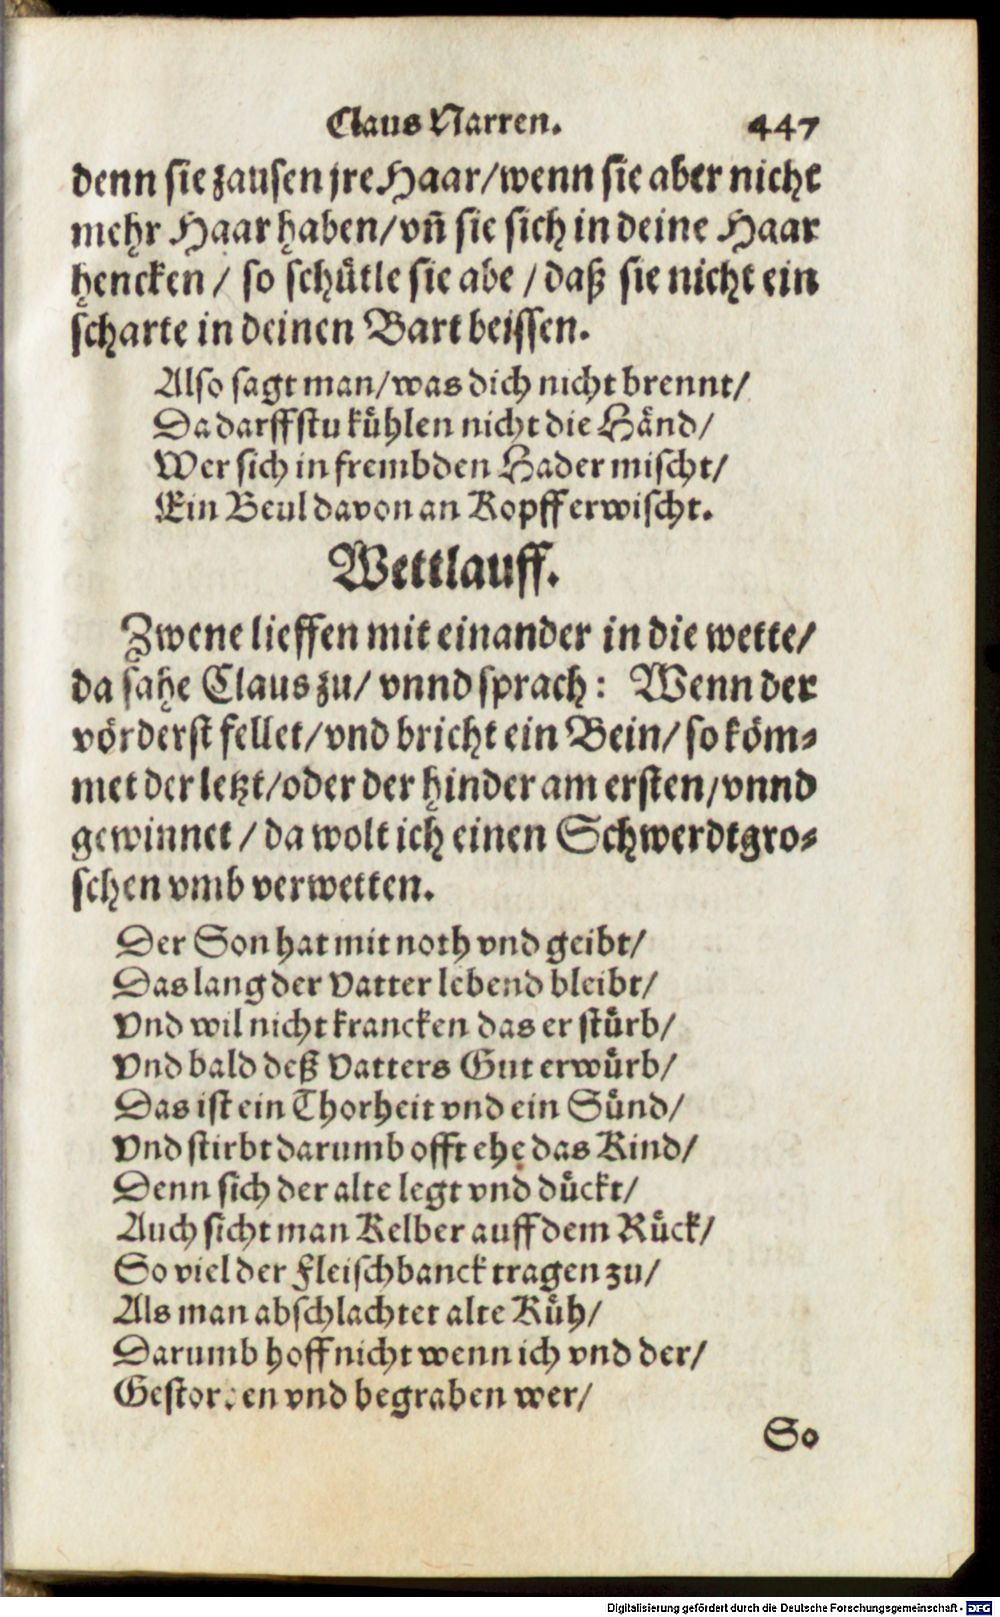 Claus Narren. 447
denn sie zausen jre Haar/wenn sie aber nicht
mehr Haar haben/vñ sie sich in deine Haar
hencken / so schüttle sie abe / daß sie nicht ein
scharte in deinen Bart beissen.
Also sagt man/was dich nicht brennt/
Da darffstu kühlen nicht die Händ/
Wer sich in frembden Hader mischt/
Ein Beul davon an Kopff erwischt.
Wettlauff.
Zwene lieffen mit einander in die wette/
da sahe Claus zu/ vnnd sprach: Wenn der
vörderst fellet/vnd bricht ein Bein/ so köm-
met der letzt/oder der hinder am ersten/vnnd
gewinnet / da wolt ich einen Schwerdtgro-
schen vmb verwetten.
Der Son hat mit noth vnd geibt/
Das lang der Vatter lebend bleibt/
Vnd wil nicht krancken das er stürb/
Vnd bald deß Vatters Gut erwürb/
Das ist ein Thorheit vnd ein Sünd/
Vnd stirbt darumb offt ehe das Kind/
Denn sich der alte legt vnd dückt/
Auch sicht man Kelber auff dem Rück/
So viel der Fleischbanck tragen zu/
Als man abschlachtet alte Küh/
Darumb hoff nicht wenn ich vnd der/
Gestor en vnd begraben wer/
So
Digitalisierung gefördert durch die Deutsche Forschungsgemeinschaft - DFG